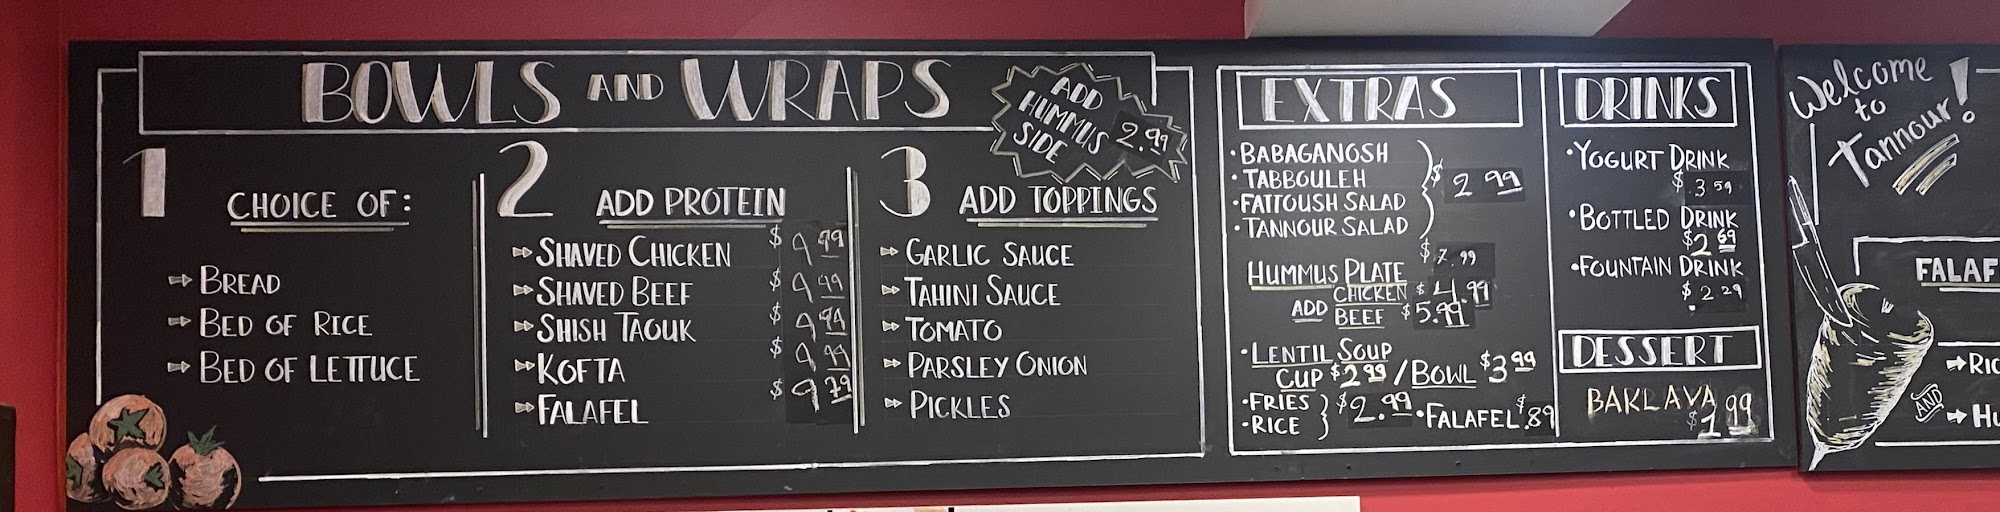 BOWLS AND WRAPS
ADD
HUMMUS
SIDE 2.99
1
CHOICE OF:
BREAD
BED OF RICE
BED OF LETTUCE
2
ADD PROTEIN
SHAVED CHICKEN $
SHAVED BEEF $ 9 49
SHISH TAOUK $ 9 99
KOFTA $ 9.99
FALAFEL $ 9 79
3
ADD TOPPINGS
GARLIC SAUCE
TAHINI SAUCE
TOMATO
PARSLEY ONION
PICKLES
EXTRAS
• BABAGANOSH
• TABBOULEH
• FATTOUSH SALAD
• TANNOUR SALAD
$ 2 99
HUMMUS PLATE $ 7.99
ADD CHICKEN $ 4.99
BEEF $ 5.99
• LENTIL SOUP
CUP $2 99 / BOWL $3 99
• FRIES
• RICE
} $2.99 • FALAFEL $.89
DRINKS
• YOGURT DRINK
$ 3 59
• BOTTLED DRINK
$2 69
• FOUNTAIN DRINK
$ 2 29
DESSERT
BAKLAVA
$ 1 99
Welcome
to
Tannour!
FALAF
RIC
AND
HU